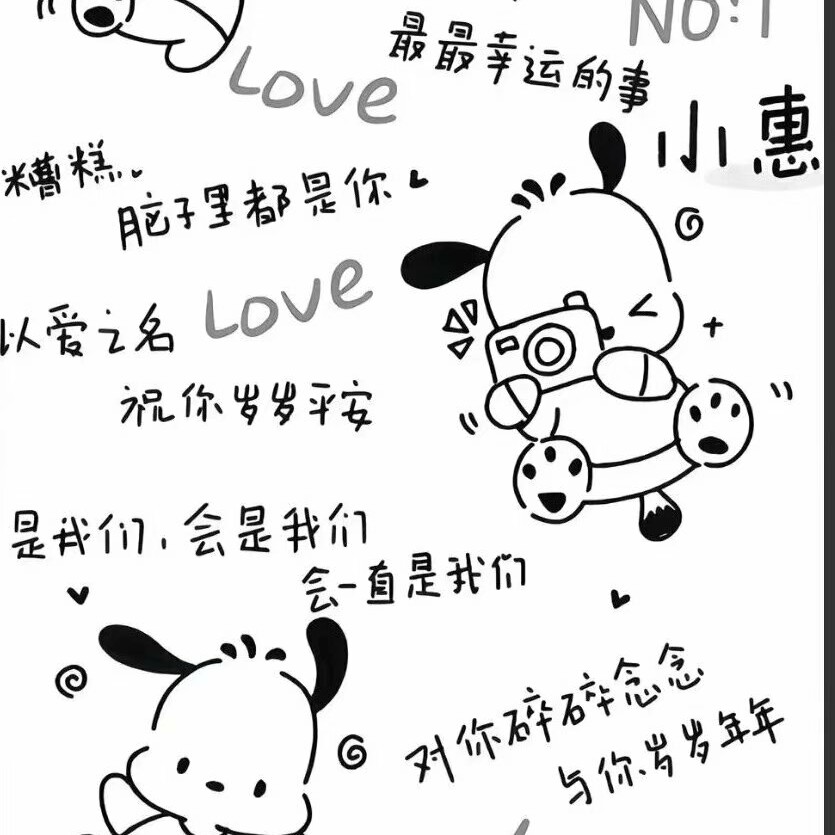 NO:1
最最幸运的事
Love
小惠
糟糕、
脑子里都是你
Love
以爱之名
祝你岁岁平安
是我们，会是我们
会一直是我们
对你碎碎念念
与你岁岁年年